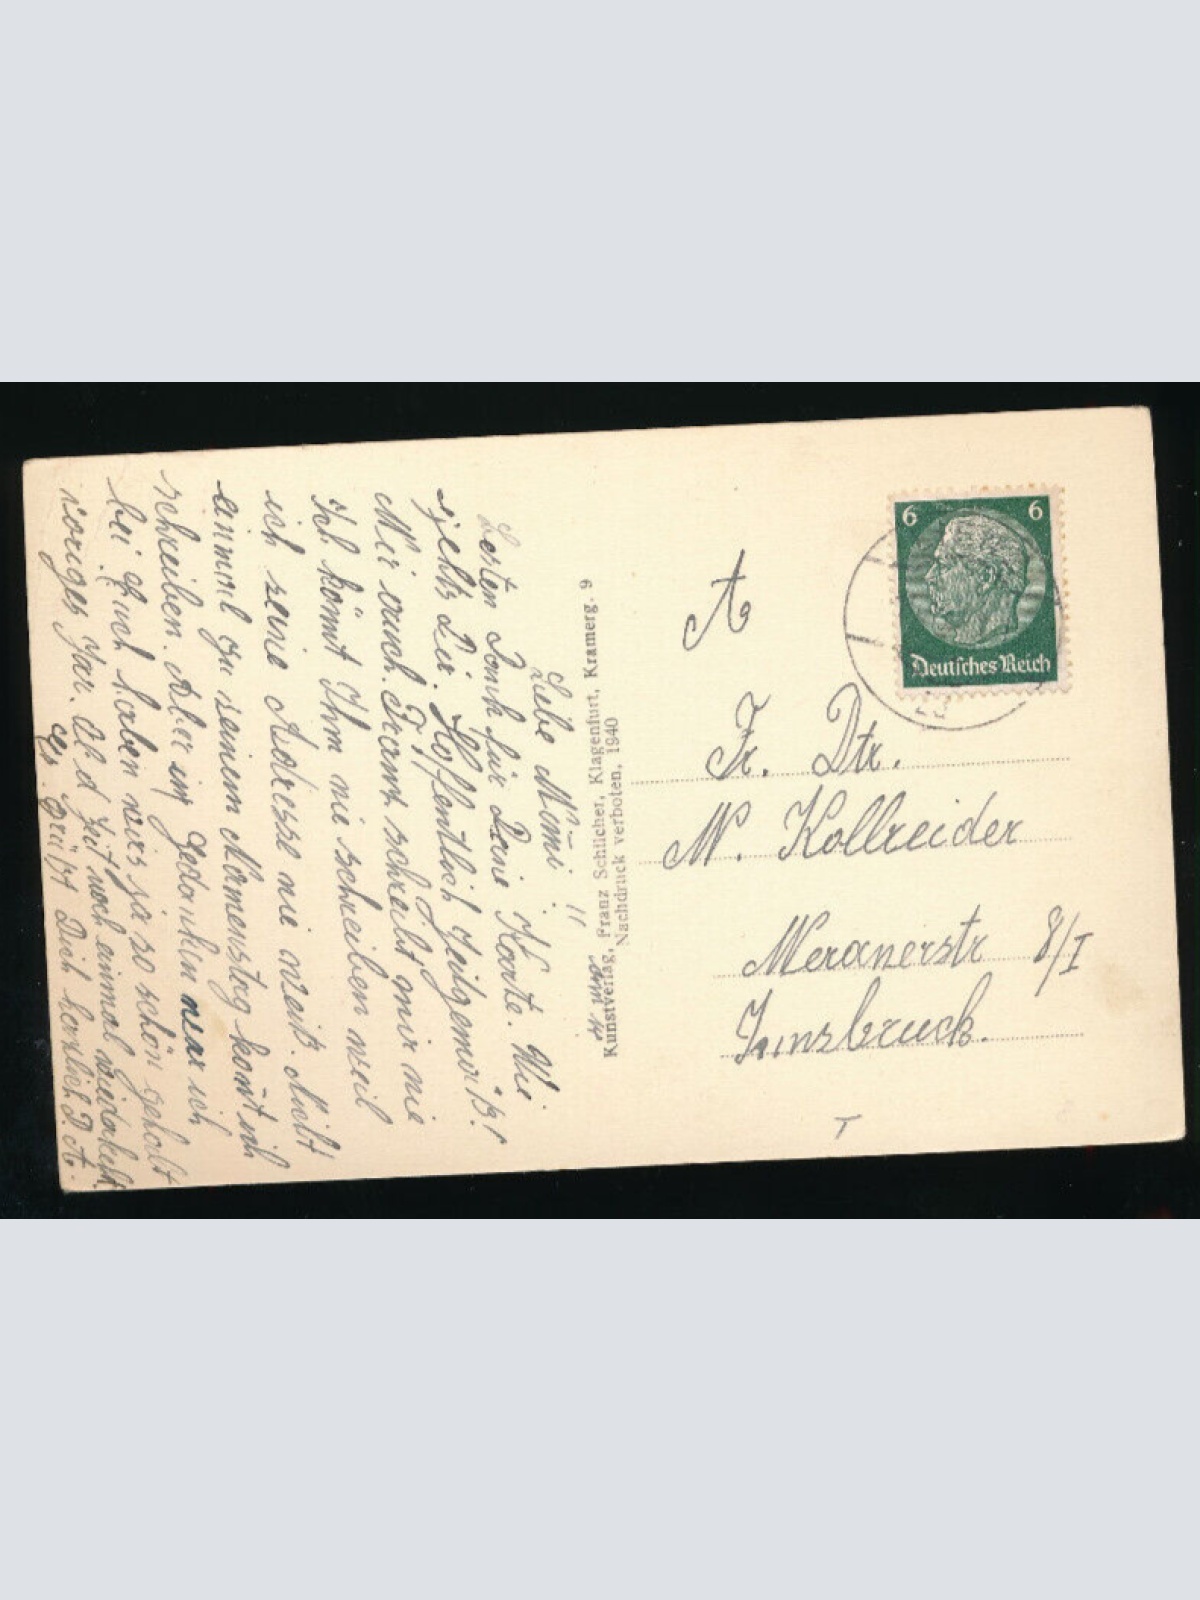 Liebe Mimi!
Besten Dank für Deine Karte. Wie
gehts Dir. Hoffentlich zeitgemäß!
Mir auch. Franz schreibt mir nie
Ich könnt Ihm nie schreiben weil
ich seine Adresse nie weiß. Nicht
einmal zu seinem Namenstag konnt ich
schreiben. Aber in Gedanken war ich
bei Euch haben wirs ja so schön gehabt
voriges Jar. Ob d Zeit noch einmal wiederkehrt.
Es grüßt Dich herzlich D. A.
Kunstverlag, Franz Schilcher, Klagenfurt, Kramerg. 9
Nachdruck verboten, 1940
6 6
Deutsches Reich
A
Fr. Dtr.
M. Kollreider
Meranerstr 8/I
Innsbruck.